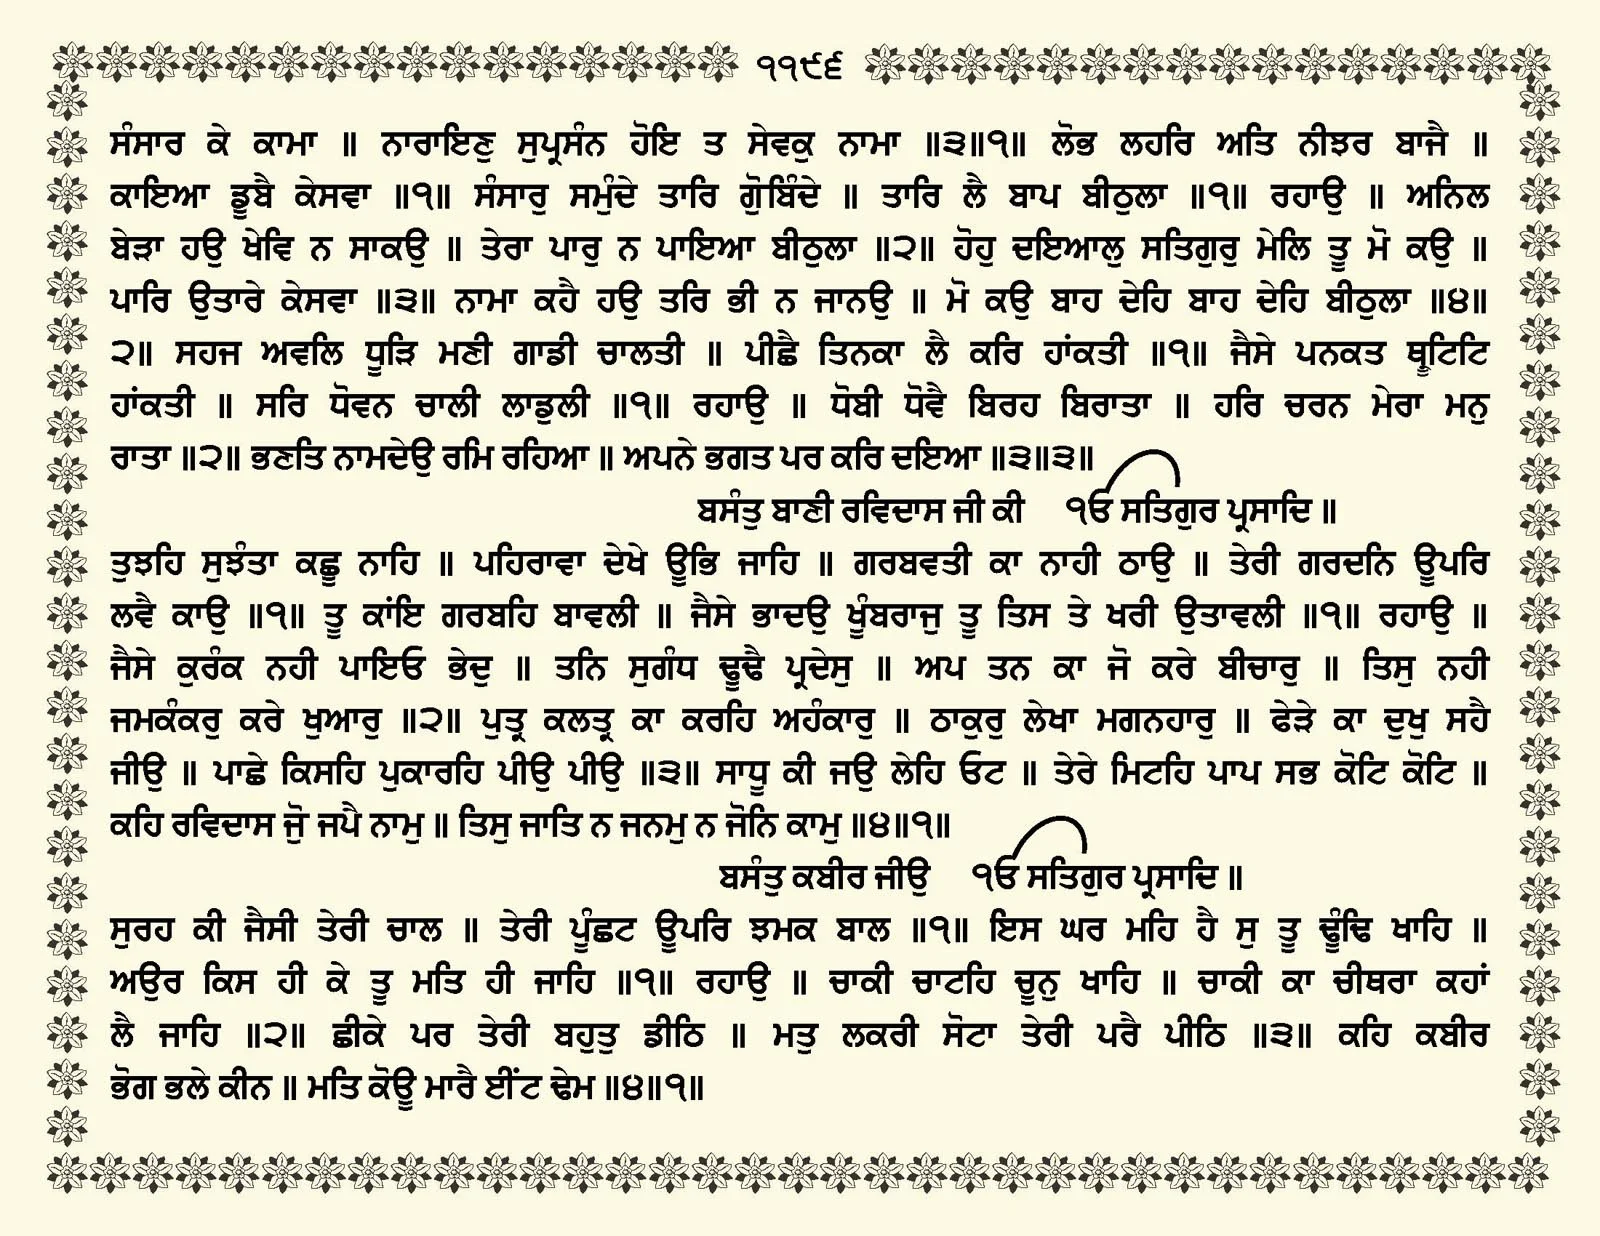 ੧੧੯੬
ਸੰਸਾਰ ਕੇ ਕਾਮਾ ॥ ਨਾਰਾਇਣੁ ਸੁਪ੍ਰਸੰਨ ਹੋਇ ਤ ਸੇਵਕੁ ਨਾਮਾ ॥੩॥੧॥ ਲੋਭ ਲਹਰਿ ਅਤਿ ਨੀਝਰ ਬਾਜੈ ॥
ਕਾਇਆ ਡੂਬੈ ਕੇਸਵਾ ॥੧॥ ਸੰਸਾਰੁ ਸਮੁੰਦੇ ਤਾਰਿ ਗੋੁਬਿੰਦੇ ॥ ਤਾਰਿ ਲੈ ਬਾਪ ਬੀਠੁਲਾ ॥੧॥ ਰਹਾਉ ॥ ਅਨਿਲ
ਬੇੜਾ ਹਉ ਖੇਵਿ ਨ ਸਾਕਉ ॥ ਤੇਰਾ ਪਾਰੁ ਨ ਪਾਇਆ ਬੀਠੁਲਾ ॥੨॥ ਹੋਹੁ ਦਇਆਲੁ ਸਤਿਗੁਰੁ ਮੇਲਿ ਤੂ ਮੋ ਕਉ ॥
ਪਾਰਿ ਉਤਾਰੇ ਕੇਸਵਾ ॥੩॥ ਨਾਮਾ ਕਹੈ ਹਉ ਤਰਿ ਭੀ ਨ ਜਾਨਉ ॥ ਮੋ ਕਉ ਬਾਹ ਦੇਹਿ ਬਾਹ ਦੇਹਿ ਬੀਠੁਲਾ ॥੪॥
੨॥ ਸਹਜ ਅਵਲਿ ਧੂੜਿ ਮਣੀ ਗਾਡੀ ਚਾਲਤੀ ॥ ਪੀਛੈ ਤਿਨਕਾ ਲੈ ਕਰਿ ਹਾਂਕਤੀ ॥੧॥ ਜੈਸੇ ਪਨਕਤ ਥ੍ਰੂਟਿਟਿ
ਹਾਂਕਤੀ ॥ ਸਰਿ ਧੋਵਨ ਚਾਲੀ ਲਾਡੁਲੀ ॥੧॥ ਰਹਾਉ ॥ ਧੋਬੀ ਧੋਵੈ ਬਿਰਹ ਬਿਰਾਤਾ ॥ ਹਰਿ ਚਰਨ ਮੇਰਾ ਮਨੁ
ਰਾਤਾ ॥੨॥ ਭਣਤਿ ਨਾਮਦੇਉ ਰਮਿ ਰਹਿਆ ॥ ਅਪਨੇ ਭਗਤ ਪਰ ਕਰਿ ਦਇਆ ॥੩॥੩॥
ਬਸੰਤੁ ਬਾਣੀ ਰਵਿਦਾਸ ਜੀ ਕੀ ੴ ਸਤਿਗੁਰ ਪ੍ਰਸਾਦਿ ॥
ਤੁਝਹਿ ਸੁਝੰਤਾ ਕਛੂ ਨਾਹਿ ॥ ਪਹਿਰਾਵਾ ਦੇਖੇ ਊਭਿ ਜਾਹਿ ॥ ਗਰਬਵਤੀ ਕਾ ਨਾਹੀ ਠਾਉ ॥ ਤੇਰੀ ਗਰਦਨਿ ਊਪਰਿ
ਲਵੈ ਕਾਉ ॥੧॥ ਤੂ ਕਾਂਇ ਗਰਬਹਿ ਬਾਵਲੀ ॥ ਜੈਸੇ ਭਾਦਉ ਖੂੰਬਰਾਜੁ ਤੂ ਤਿਸ ਤੇ ਖਰੀ ਉਤਾਵਲੀ ॥੧॥ ਰਹਾਉ ॥
ਜੈਸੇ ਕੁਰੰਕ ਨਹੀ ਪਾਇਓ ਭੇਦੁ ॥ ਤਨਿ ਸੁਗੰਧ ਢੂਢੈ ਪ੍ਰਦੇਸੁ ॥ ਅਪ ਤਨ ਕਾ ਜੋ ਕਰੇ ਬੀਚਾਰੁ ॥ ਤਿਸੁ ਨਹੀ
ਜਮਕੰਕਰੁ ਕਰੇ ਖੁਆਰੁ ॥੨॥ ਪੁਤ੍ਰ ਕਲਤ੍ਰ ਕਾ ਕਰਹਿ ਅਹੰਕਾਰੁ ॥ ਠਾਕੁਰੁ ਲੇਖਾ ਮਗਨਹਾਰੁ ॥ ਫੇੜੇ ਕਾ ਦੁਖੁ ਸਹੈ
ਜੀਉ ॥ ਪਾਛੇ ਕਿਸਹਿ ਪੁਕਾਰਹਿ ਪੀਉ ਪੀਉ ॥੩॥ ਸਾਧੂ ਕੀ ਜਉ ਲੇਹਿ ਓਟ ॥ ਤੇਰੇ ਮਿਟਹਿ ਪਾਪ ਸਭ ਕੋਟਿ ਕੋਟਿ ॥
ਕਹਿ ਰਵਿਦਾਸ ਜੋੁ ਜਪੈ ਨਾਮੁ ॥ ਤਿਸੁ ਜਾਤਿ ਨ ਜਨਮੁ ਨ ਜੋਨਿ ਕਾਮੁ ॥੪॥੧॥
ਬਸੰਤੁ ਕਬੀਰ ਜੀਉ ੴ ਸਤਿਗੁਰ ਪ੍ਰਸਾਦਿ ॥
ਸੁਰਹ ਕੀ ਜੈਸੀ ਤੇਰੀ ਚਾਲ ॥ ਤੇਰੀ ਪੂੰਛਟ ਊਪਰਿ ਝਮਕ ਬਾਲ ॥੧॥ ਇਸ ਘਰ ਮਹਿ ਹੈ ਸੁ ਤੂ ਢੂੰਢਿ ਖਾਹਿ ॥
ਅਉਰ ਕਿਸ ਹੀ ਕੇ ਤੂ ਮਤਿ ਹੀ ਜਾਹਿ ॥੧॥ ਰਹਾਉ ॥ ਚਾਕੀ ਚਾਟਹਿ ਚੂਨੁ ਖਾਹਿ ॥ ਚਾਕੀ ਕਾ ਚੀਥਰਾ ਕਹਾਂ
ਲੈ ਜਾਹਿ ॥੨॥ ਛੀਕੇ ਪਰ ਤੇਰੀ ਬਹੁਤੁ ਡੀਠਿ ॥ ਮਤੁ ਲਕਰੀ ਸੋਟਾ ਤੇਰੀ ਪਰੈ ਪੀਠਿ ॥੩॥ ਕਹਿ ਕਬੀਰ
ਭੋਗ ਭਲੇ ਕੀਨ ॥ ਮਤਿ ਕੋਊ ਮਾਰੈ ਈਂਟ ਢੇਮ ॥੪॥੧॥